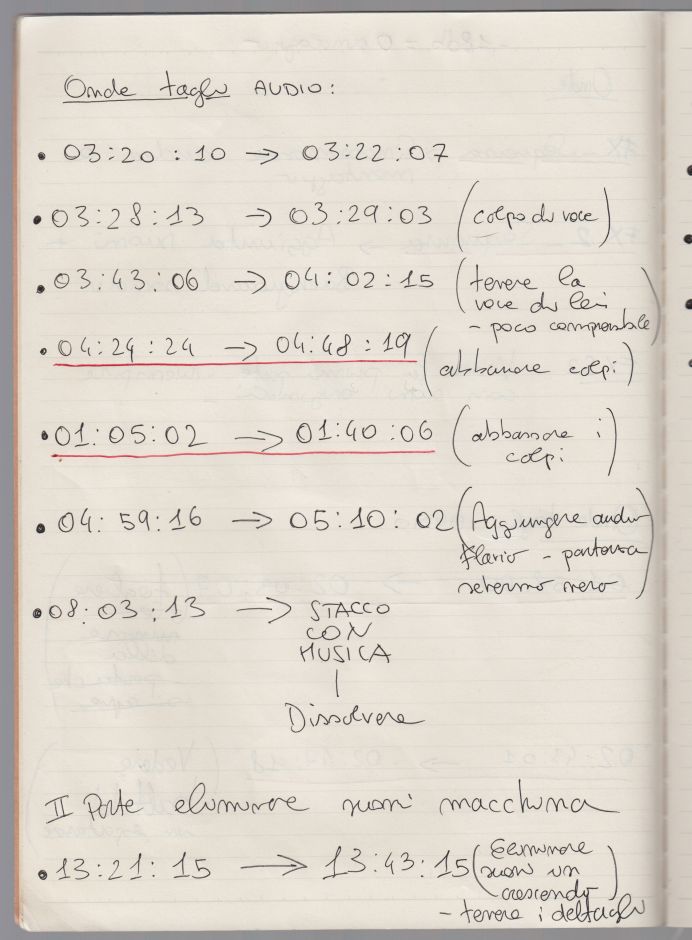 Onde taglu AUDIO:
• 03:20:10 → 03:22:07
• 03:28:13 → 03:29:03 (colpo du voce)
• 03:43:06 → 04:02:15 (tenere la
voce du lei
- poco comprensibile)
• 04:24:24 → 04:48:19 (abbassare colpi)
• 01:05:02 → 01:40:06 (abbassare i
colpi)
• 04:59:16 → 05:10:02 (Aggiungere audio
Flavio - partenza
schermo nero)
• 08:03:13 → STACCO
CON
MUSICA
|
Dissolvere
II Parte eliminare suoni macchina
• 13:21:15 → 13:43:15 (Eliminare
suoni in
crescendo)
- tenere i dettagli